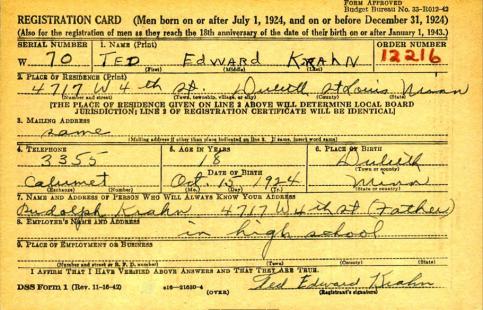 FORM APPROVED
Budget Bureau No. 33-R012-42
REGISTRATION CARD (Men born on or after July 1, 1924, and on or before December 31, 1924)
(Also for the registration of men as they reach the 18th anniversary of the date of their birth on or after January 1, 1943.)
SERIAL NUMBER 1. NAME (Print) ORDER NUMBER
W 70 TED EDWARD KRAHN 12216
(First) (Middle) (Last)
2. PLACE OF RESIDENCE (Print)
4717 W 4th St. Duluth St Louis Minn
(Number and street) (Town, township, village, or city) (County) (State)
[THE PLACE OF RESIDENCE GIVEN ON LINE 2 ABOVE WILL DETERMINE LOCAL BOARD
JURISDICTION; LINE 2 OF REGISTRATION CERTIFICATE WILL BE IDENTICAL]
3. MAILING ADDRESS
same
[Mailing address if other than place indicated on line 2. If same, insert word same]
4. TELEPHONE 5. AGE IN YEARS 6. PLACE OF BIRTH
3355 18 Duluth
DATE OF BIRTH (Town or county)
Calumet Oct. 15 1924 Minn
(Exchange) (Number) (Mo.) (Day) (Yr.) (State or country)
7. NAME AND ADDRESS OF PERSON WHO WILL ALWAYS KNOW YOUR ADDRESS
Rudolph Krahn 4717 W 4th St (Father)
8. EMPLOYER'S NAME AND ADDRESS
in high school
9. PLACE OF EMPLOYMENT OR BUSINESS
(Number and street or R. F. D. number) (Town) (County) (State)
I AFFIRM THAT I HAVE VERIFIED ABOVE ANSWERS AND THAT THEY ARE TRUE.
DSS Form 1 (Rev. 11-16-42) (OVER) Ted Edward Krahn
(Registrant's signature)